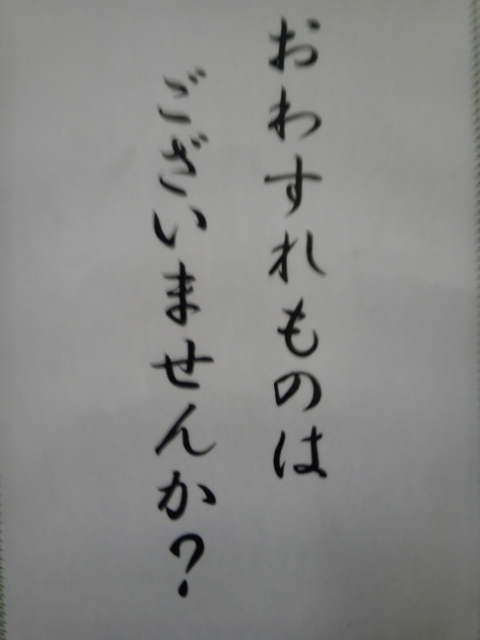 おわすれものは
ございませんか?